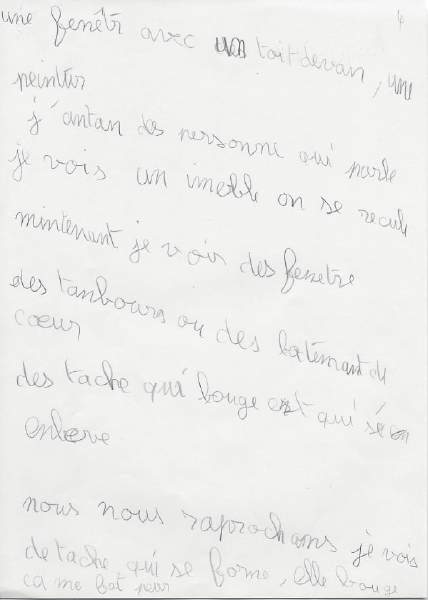 4
une fenêtr avec un toit devan, une
peintur
j'antan des personne qui parle
je vois un imeble on se recule
mintenant je vois des fenetre
des tanbours ou des batemant de
cœur
des tache qui bouge est qui sé
enleve
nous nous raprochams je vois
de tache qui se forme, elle bouge
ca me fat peur